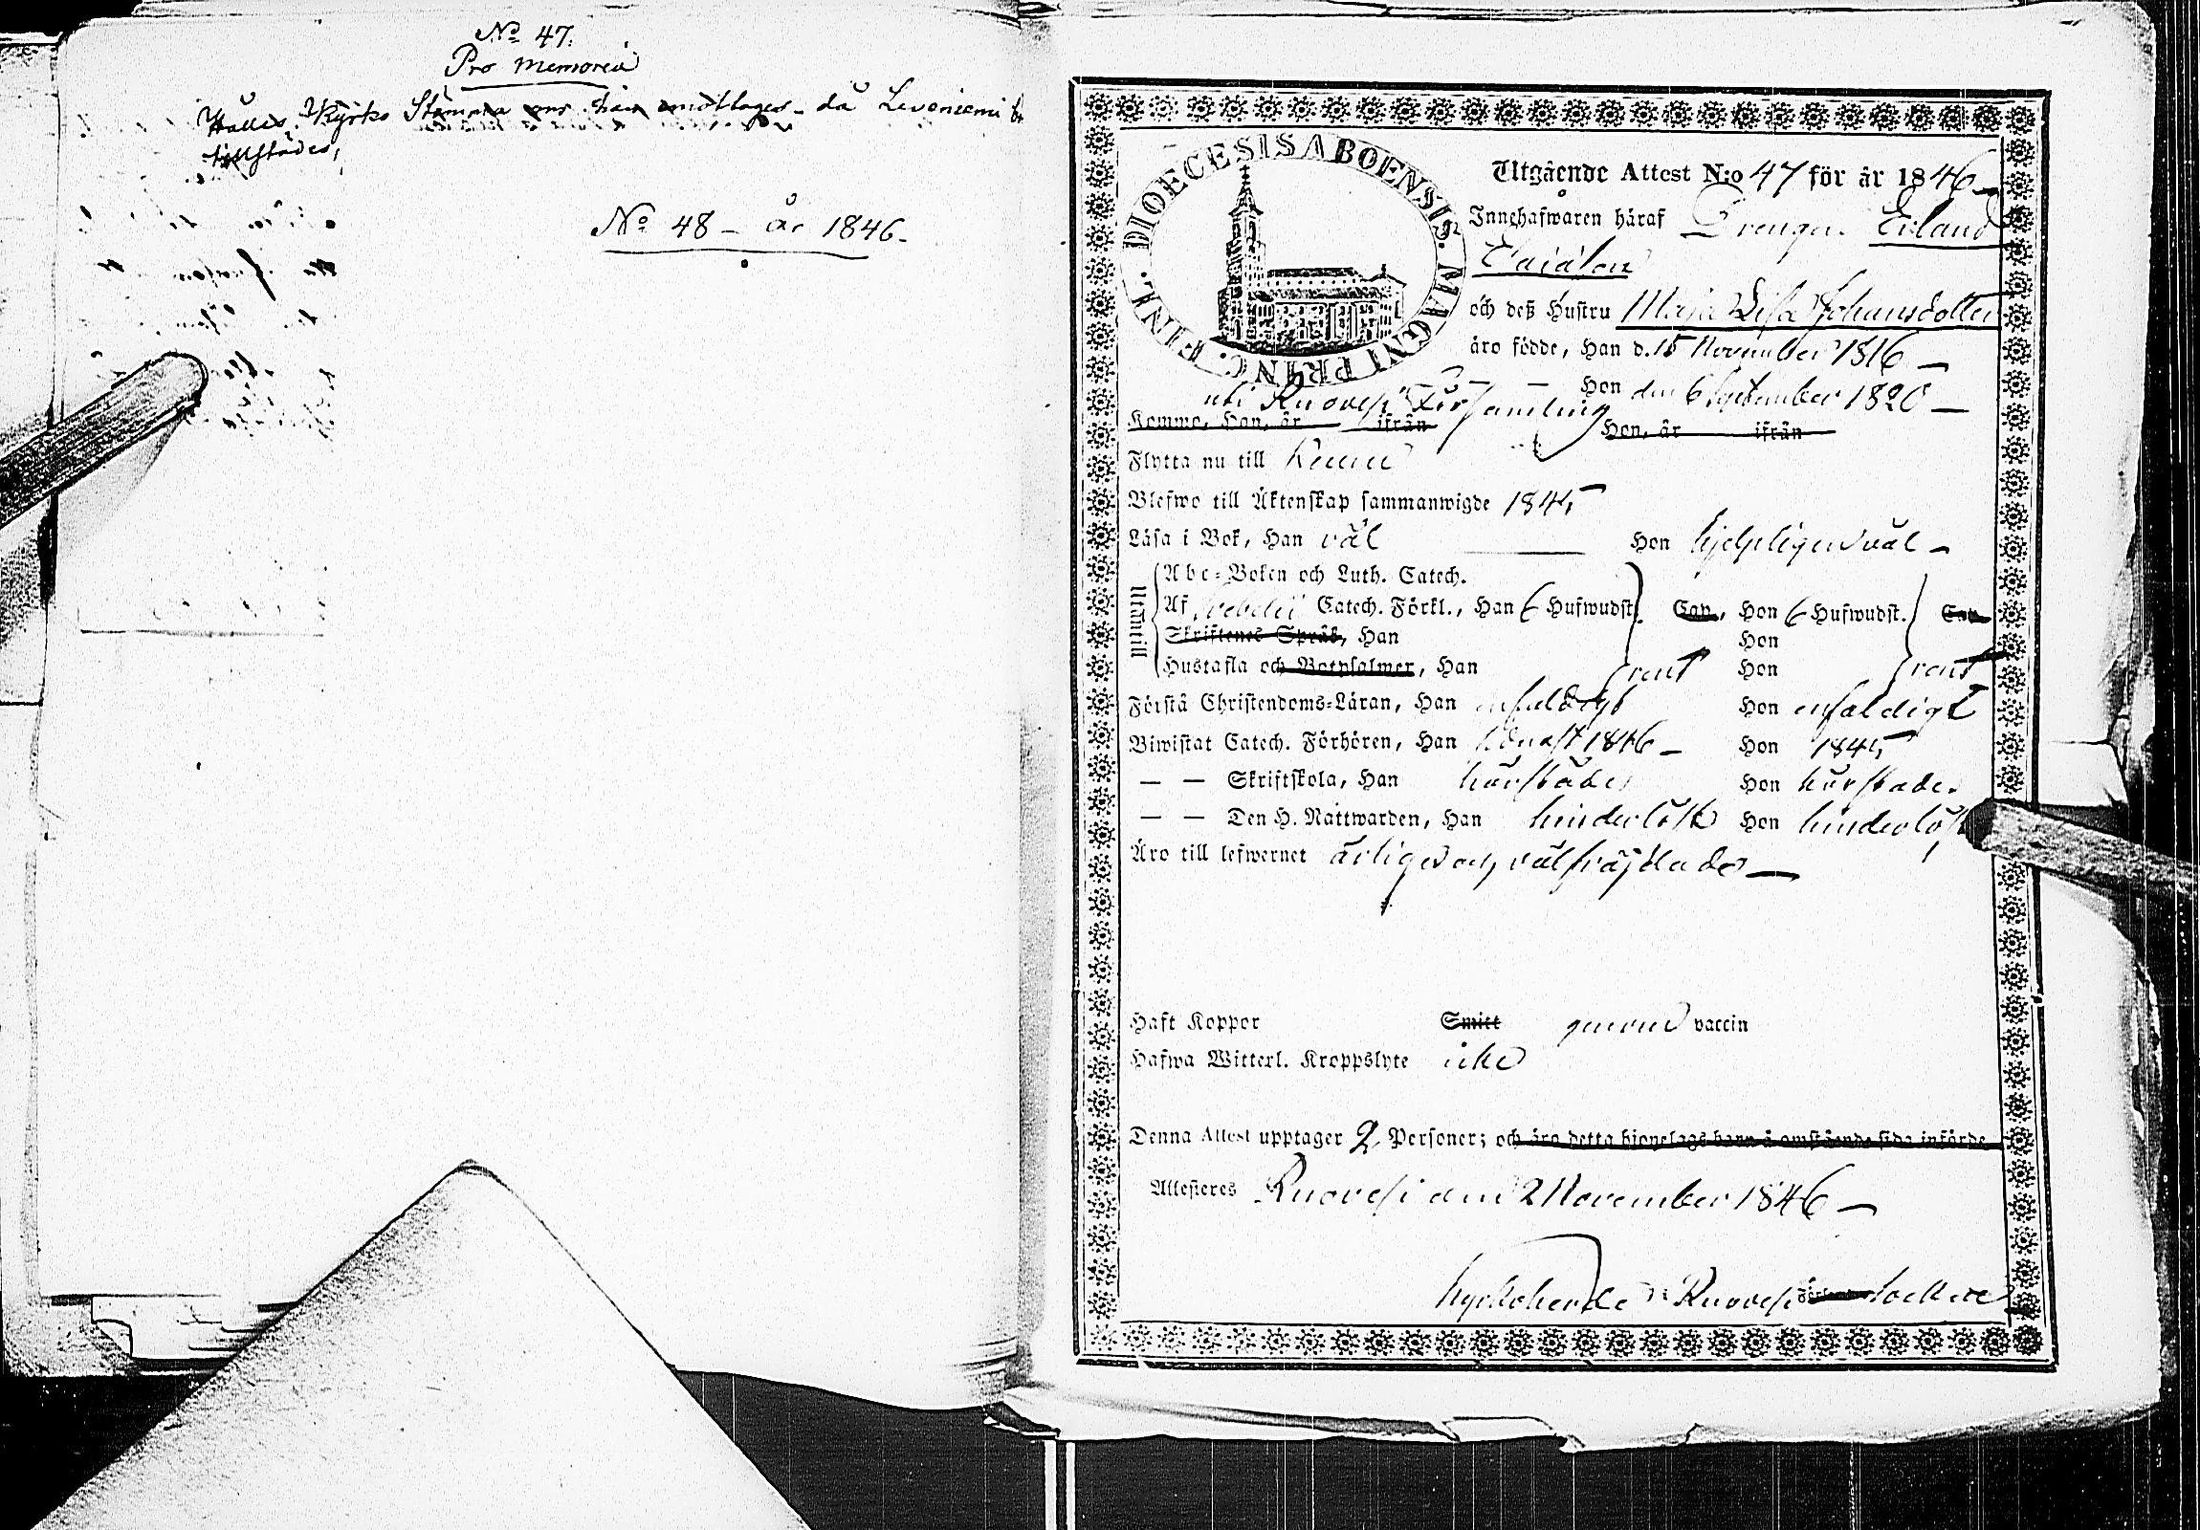 No 47.
Pro Memoria
Hålles Kyrko Stämma om han emottages då Levoniemi
tillstädes,
No 48 - år 1846.
DIOECESIS ABOENSIS. MAGNI PRINC. FINL.
Utgående Attest N:o 47 för år 1846
Innehafwaren häraf Drengen Erland
Esaiasson
och deß Hustru Maja Lisa Johansdotter
äro födde, Han d. 15 November 1816 —
Hon den 6 September 1820 —
uti Ruovesi Församling
Komme, Han, år ifrån Hon, år ifrån
Flytta nu till
Blefwo till Äktenskap sammanwigde 1845
Läsa i Bok, Han väl Hon hjelpligen väl —
Utantill
Abc-Boken och Luth. Catech.
Af Svebelii Catech. Förkl., Han 6 Hufwudst. Cap., Hon 6 Hufwudst. Cap.
Skriftenes Språk, Han Hon
Hustafla och Botpsalmer, Han rent Hon rent
Förstå Christendoms-Läran, Han enfaldigt Hon enfaldigt
Biwistat Catech. Förhören, Han 1846 — Hon 1845
— — Skriftskola, Han härstädes Hon härstädes
— — Den H. Nattwarden, Han hinderlöst Hon hinderlöst
Äro till lefwernet ärlige och välfräjdade —
Haft Koppor Smitt genom vaccin
Hafwa Witterl. Kroppslyte icke
Denna Attest upptager 2 Personer; och äro detta hionelags barn å omstående sida införde
Attesteres Ruovesi den 2 November 1846 —
Ruovesi